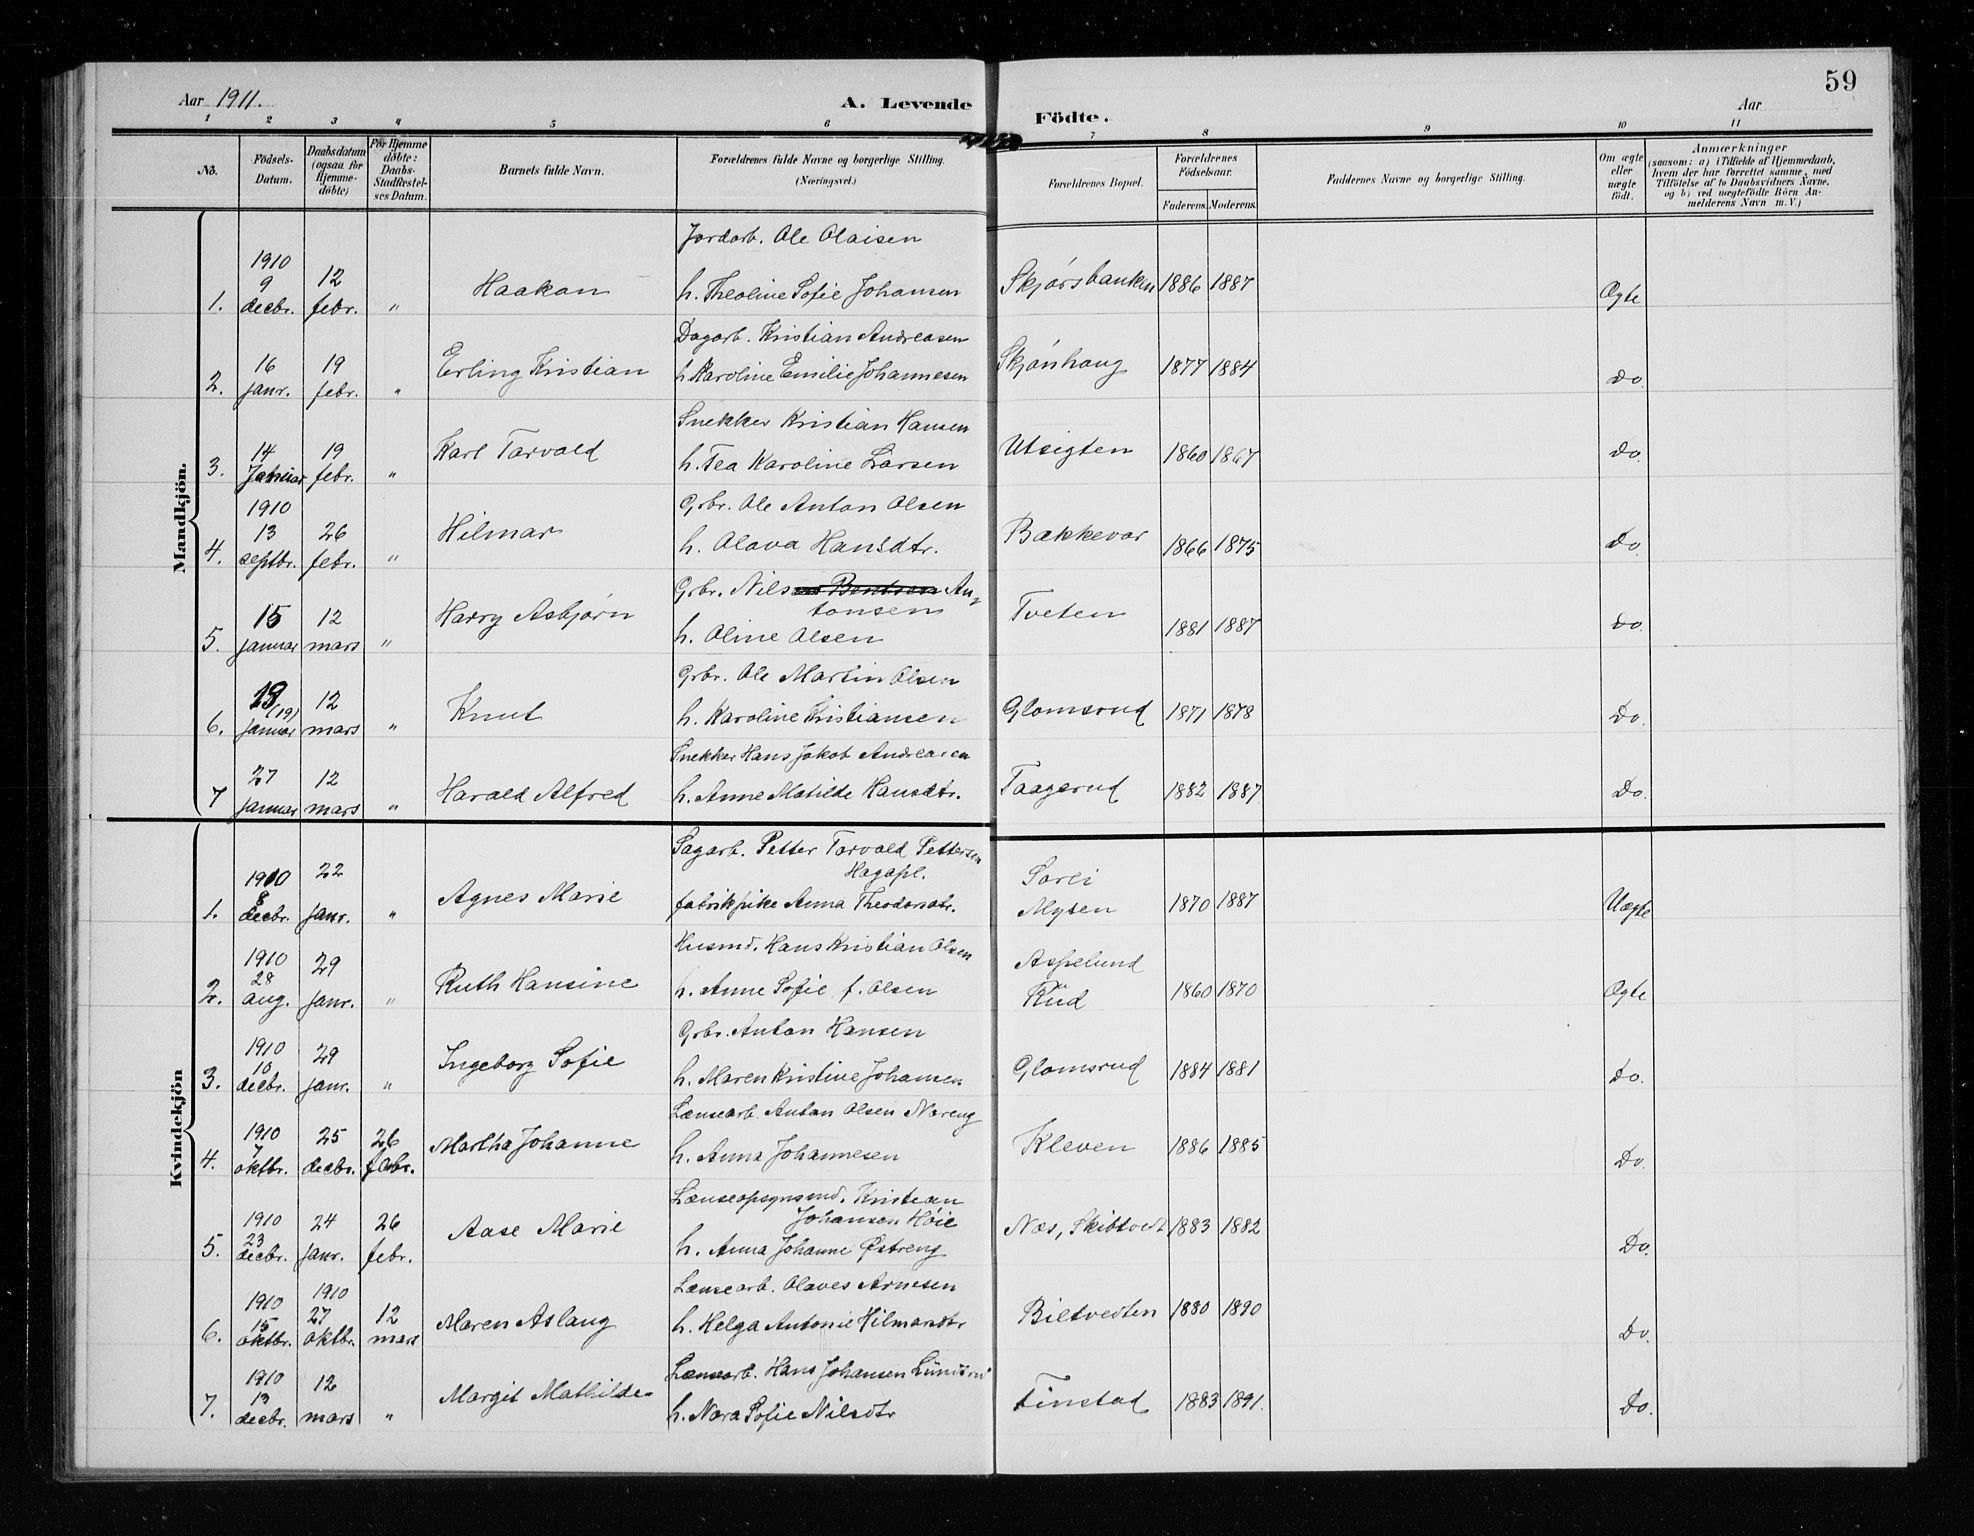 59
Aar 1911. A. Levende Födte. Aar
1 2 3 4 5 6 7 8 9 10 11
No. Födsels-Datum. Daabsdatum (ogsaa for Hjemmedøbte) For Hjemmedøbte: Daabs-Stadfæstelses Datum. Barnets fulde Navn. Forældrenes fulde Navne og borgerlige Stilling. (Næringsvei.) Forældrenes Bopæl. Forældrenes Födselsaar. Faderens. Moderens. Faddernes Navne og borgerlige Stilling. Om ægte eller uægte födt. Anmærkninger (saasom: a) i Tilfælde af Hjemmedaab, hvem der har forrettet samme, med Tilföielse af to Daabsvidners Navne, og b) ved uægtefödte Börn Anmelderens Navn m. V.)
Mandkjön.
Jordarb. Ole Olaisen
1. 1910 9 decbr. 12 febr. " Haakon h. Theoline Sofie Johansen Skjørsbanken 1886 1887 Ægte
Dagarb. Kristian Andreasen
2. 16 janr. 19 febr. " Erling Kristian h. Karoline Emilie Johannesen Skjønhaug 1877 1884 Do.
Snekker Kristian Hansen
3. 14 Januar 19 febr. " Karl Torvald h. Tea Karoline Larsen Utsigten 1860 1867 Do.
Grbr. Ole Anton Olsen
4. 1910 13 septbr. 26 febr. " Hilmar h. Olava Hansdtr. Bækkevar 1866 1875 Do.
Grbr. Nils Bentsen An-
tonsen
5. 15 januar 12 mars " Harry Asbjørn h. Oline Olsen Tveten 1881 1887 Do.
Grbr. Ole Martin Olsen
6. 18 (19) januar 12 mars " Knut h. Karoline Kristiansen Glomsrud 1871 1878 Do.
Snekker Hans Jakob Andreasen
7 27 januar 12 mars " Harald Alfred h. Anne Matilde Hansdtr. Taagerud 1882 1887 Do.
Kvindekjön
Sagarb. Petter Torvald Pettersen
Hagapl. Sorci
1. 1910 8 decbr. 22 janr. " Agnes Marie fabrikpike Anna Theodorsdtr. Mysen 1870 1887 Uægte
Husmd. Hans Kristian Olsen Aspelund
2. 1910 28 aug. 29 janr. " Ruth Hansine h. Anne Sofie f. Olsen Rud 1860 1870 Ægte
Grbr. Anton Hansen
3. 1910 10 decbr. 29 janr. " Ingeborg Sofie h. Maren Kristine Johansen Glomsrud 1884 1881 Do.
Lænsearb. Anton Olsen Noreng
4. 1910 7 oktbr. 25 decbr. 26 febr. Martha Johanne h. Anna Johannesen Kleven 1886 1885 Do.
Lænseopsynsmd. Kristian
Johansen Høie
5. 1910 23 decbr. 24 janr. 26 febr. Aase Marie h. Anna Johanne Østreng Næs, Skibtvedt 1883 1882 Do.
Lænsearb. Olaves Arnesen
6. 1910 15 oktbr. 1910 27 oktbr. 12 mars Maren Aslaug h. Helga Antonie Hilmarsdtr Biltvedten 1880 1890 Do.
Lænsearb. Hans Johansen
7. 1910 13 decbr. 12 mars " Margit Mathilde h. Nora Sofie Nilsdtr Finstad 1883 1891. Do.